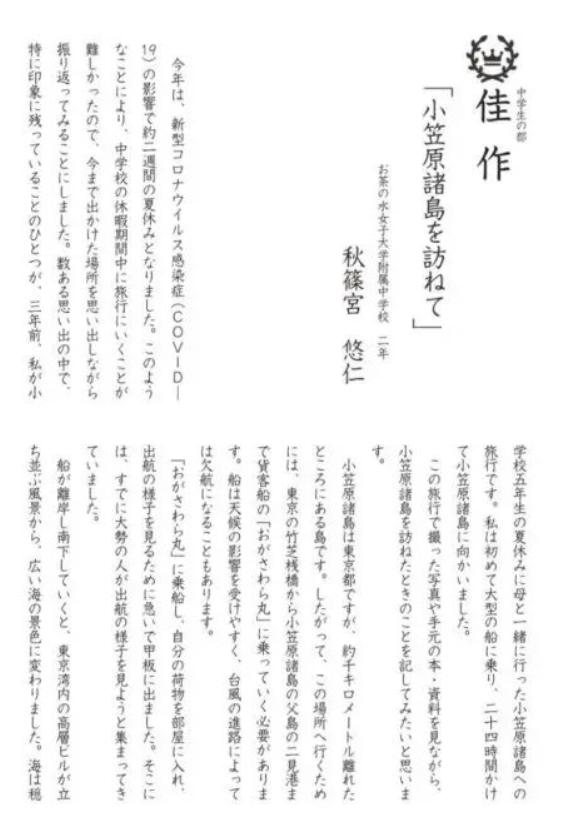 中学生の部
佳作
「小笠原諸島を訪ねて」
お茶の水女子大学附属中学校 二年
秋篠宮 悠仁
今年は、新型コロナウイルス感染症(COVID―
19)の影響で約二週間の夏休みとなりました。このよう
なことにより、中学校の休暇期間中に旅行にいくことが
難しかったので、今まで出かけた場所を思い出しながら
振り返ってみることにしました。数ある思い出の中で、
特に印象に残っていることのひとつが、三年前、私が小
学校五年生の夏休みに母と一緒に行った小笠原諸島への
旅行です。私は初めて大型の船に乗り、二十四時間かけ
て小笠原諸島に向かいました。
この旅行で撮った写真や手元の本・資料を見ながら、
小笠原諸島を訪ねたときのことを記してみたいと思いま
す。
小笠原諸島は東京都ですが、約千キロメートル離れた
ところにある島です。したがって、この場所へ行くため
には、東京の竹芝桟橋から小笠原諸島の父島の二見港ま
で貨客船の「おがさわら丸」に乗っていく必要がありま
す。船は天候の影響を受けやすく、台風の進路によって
は欠航になることもあります。
「おがさわら丸」に乗船し、自分の荷物を部屋に入れ、
出航の様子を見るために急いで甲板に出ました。そこに
は、すでに大勢の人が出航の様子を見ようと集まってき
ていました。
船が離岸し南下していくと、東京湾内の高層ビルが立
ち並ぶ風景から、広い海の景色に変わりました。海は穏